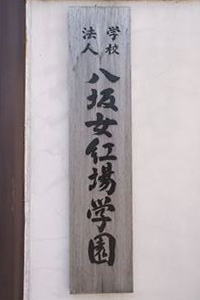 学校法人
八坂女紅場学園